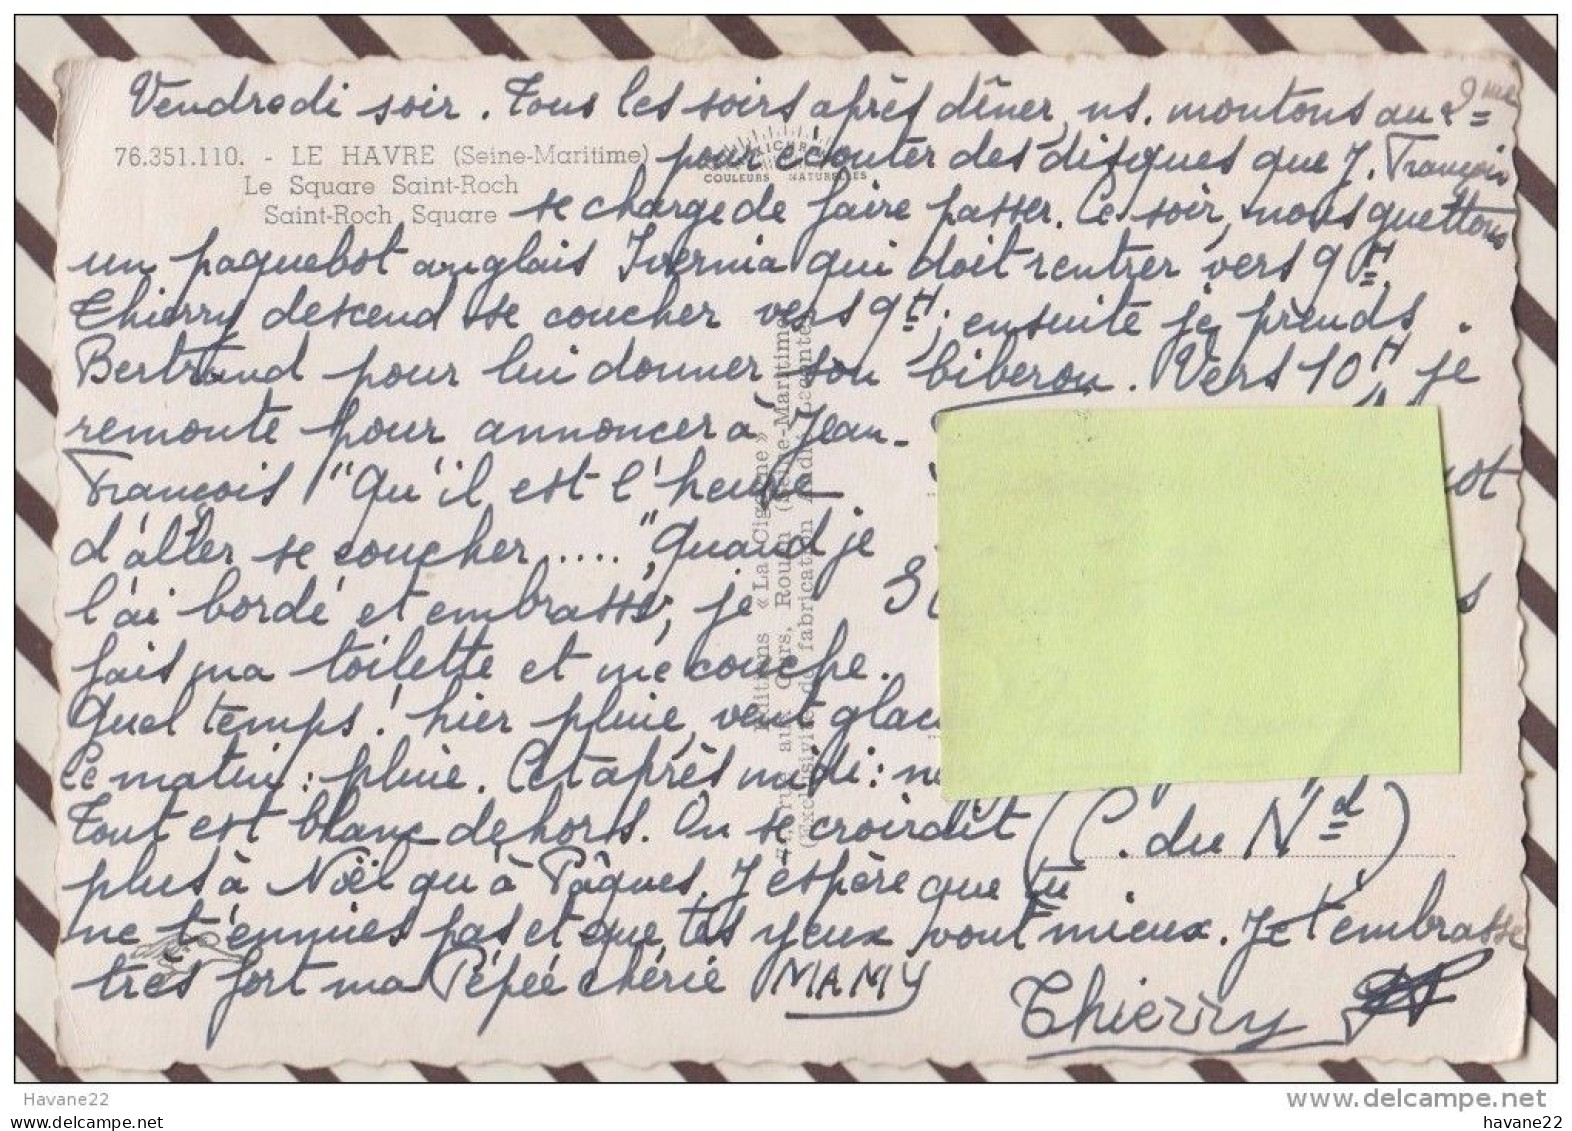 Vendredi soir. Tous les soirs après dîner, ns. montons au 2=
ème
76.351.110. - LE HAVRE (Seine-Maritime)
Le Square Saint-Roch
Saint-Roch Square
COULEURS NATURELLES
pour écouter des disques que J. François
se charge de faire passer. Ce soir, nous guettons
un paquebot anglais Ivernia qui doit rentrer vers 9H.
Thierry descend se coucher vers 9H; ensuite je prends
Bertrand pour lui donner son biberon. Vers 10H je
remonte pour annoncer à Jean-
François "Qu'il est l'heure
d'aller se coucher....." Quand je
l'ai bordé et embrassé, je
fais ma toilette et me couche.
Quel temps! hier pluie, vent glac
Ce matin: pluie. Cet après midi: ne
Tout est blanc dehors. On se croirait
plus à Noël qu'à Pâques. J'espère que tu
ne t'ennuies pas et que tes yeux vont mieux. Je t'embrasse
très fort ma Pépée chérie MAMY
Thierry
(C. du Nd)
Editions «La Cigogne»
cours, Rouen (Seine-Maritime)
(Exclusivité de fabrication André Leconte)
Havane22
www.delcampe.net
www.delcampe.net
havane22